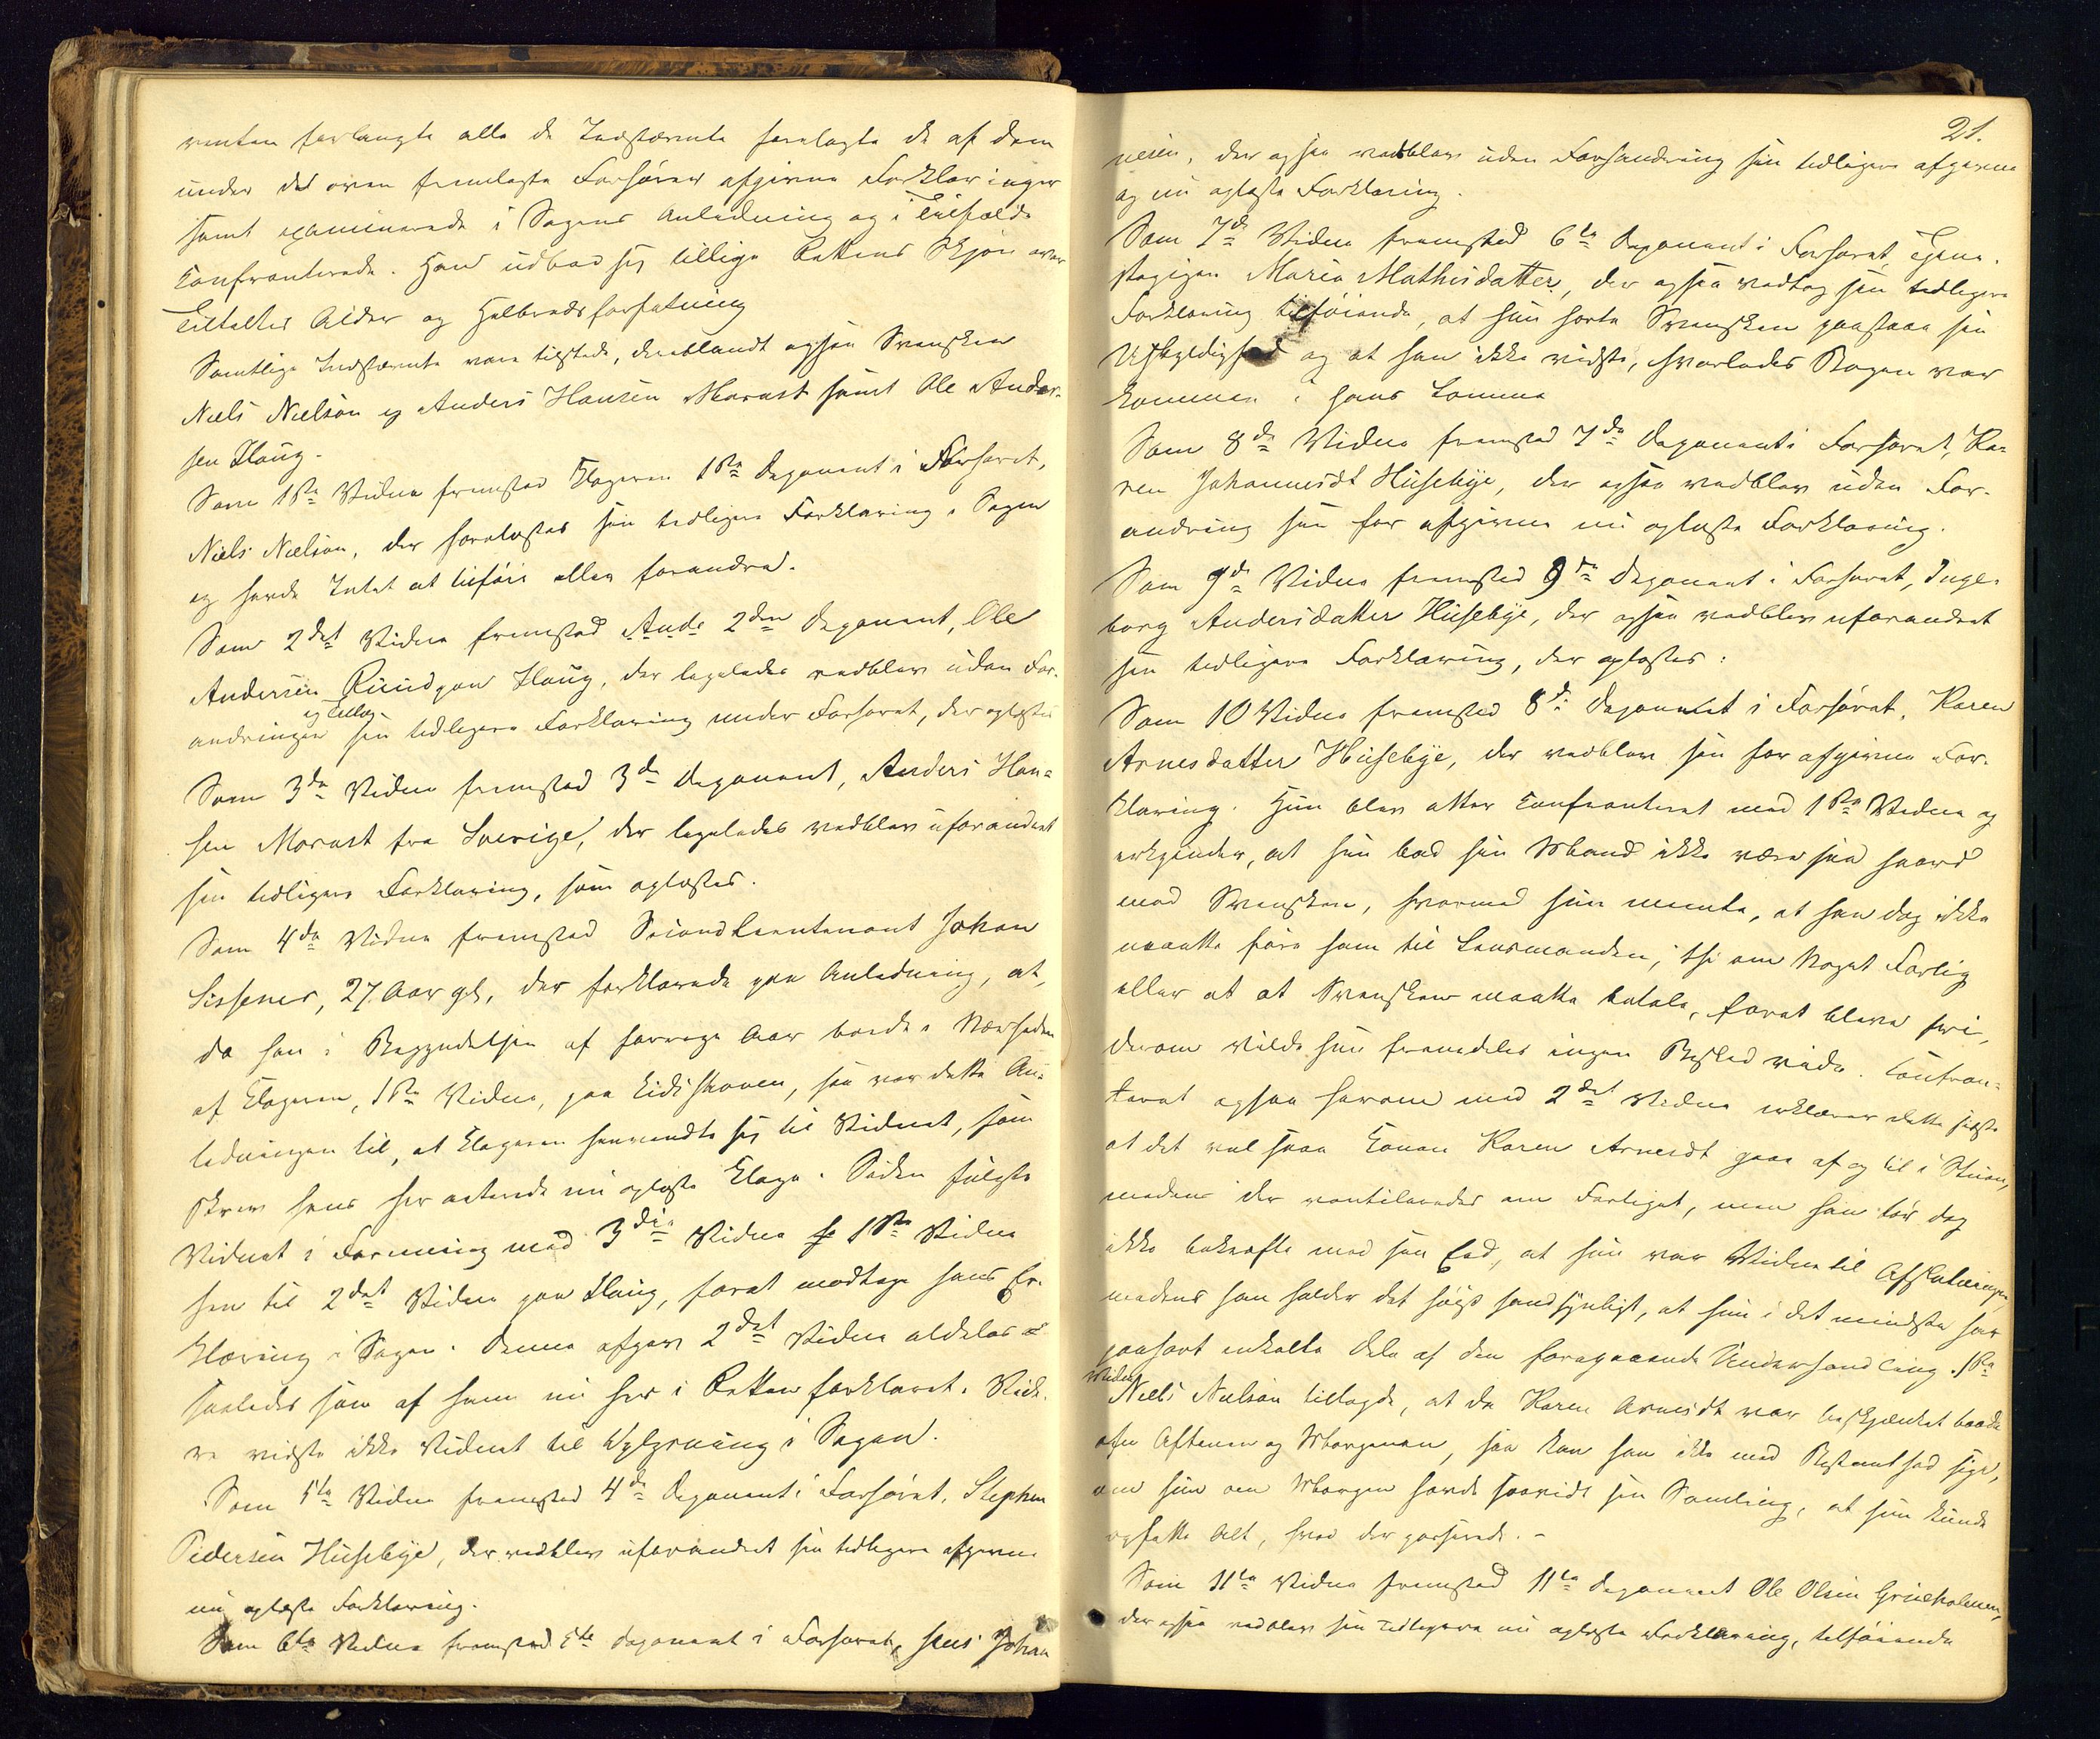 renten forlangte alle de Indstævnte forelagte de af dem
under det oven fremlagte Forhører afgivne Forklaringer
samt examinerede i Sagens Anledning og i Tilfælde
confronterede. Han udbad sig tillige Rettens Skjøn over
Tiltaltes Alder og Helbredsforfatning
Samtlige Indstævnte vare tilstede, deriblandt ogsaa Svensken
Niels Nielson og Anders Hansen Morast samt Ole Ander-
sen Haug.
Som 1ste Vidne fremstod Klageren 1ste Deponent i Forhøret,
Niels Nielson, der forelæstes sin tidligere Forklaring i Sagen
og havde Intet at tilføie eller forandre.
Som 2det Vidne fremstod 2den Deponent, Ole
Andersen Ruud paa Haug, der ligeledes vedblev uden For-
andringer og Tillæg sin tidligere Forklaring under Forhøret, der oplæstes
Som 3die Vidne fremstod 3die Deponent, Anders Han-
sen Morast fra Sverige, der ligeledes vedblev uforandret
sin tidligere Forklaring, som oplæstes.
Som 4de Vidne fremstod Secondlieutenant Johan
Sissener, 27 Aar gl, der forklarede paa Anledning, at,
da han i Begyndelsen af forrige Aar boede i Nærheden
af Klageren, 1ste Vidne, paa Eidsskoven, saa var dette An-
ledningen til, at Klageren henvendte sig til Vidnet, som
skrev hans her acterede nu oplæste Klage. Siden fulgte
Vidnet i Forening med 3die Vidne 1ste Vidne
hen til 2det Vidne paa Haug, forat modtage hans Er-
klæring i Sagen. Denne afgav 2det Vidne aldeles
saaledes som af ham nu her i Retten forklaret. Vide-
re vidste ikke Vidnet til Oplysning i Sagen.
Som 5te Vidne fremstod 4de Deponent i Forhøret, Stephen
Pedersen Husebye, der vedblev uforandret sin tidligere afgivne
nu oplæste Forklaring.
Som 6te Vidne fremstod 5te Deponent i Forhøret, Jens Johan
21.
nesen, der ogsaa vedblev uden Forhandring sin tidligere afgivne
og nu oplæste Forklaring.
Som 7de Vidne fremstod 6te Deponent i Forhøret, Tjene-
stepigen Maria Mathisdatter, der ogsaa vedtog sin tidligere
Forklaring tilføiende, at hun hørte Svensken paastaae sin
Uskyldighed og at han ikke vidste, hvorledes Bogen var
kommen i hans Lomme
Som 8de Vidne fremstod 7de Deponent i Forhøret, Ka-
ren Johannesdt Husebye, der ogsaa vedblev uden For-
andring sin før afgivne nu oplæste Forklaring.
Som 9de Vidne fremstod 9de Deponent i Forhøret, Inge-
borg Andersdatter Husebye, der ogsaa vedblev uforandret
sin tidligere Forklaring, der oplæstes:
Som 10 Vidne fremstod 8de Deponent i Forhøret, Karen
Arnesdatter Husebye, der vedblev sin før afgivne For-
klaring. Hun blev atter confronteret med 1ste Vidne og
erkjender, at hun bad sin Mand ikke være saa haard
mod Svensken, hvormed hun meente, at han dog ikke
maatte føre ham til Lensmanden, thi om Noget Forlig
eller at at Svensken maatte betale, forat blive fri,
derom vilde hun fremdeles ingen Besked vide. Confron-
teret ogsaa herom med 2det Vidne erklærer dette sidste
at det vel saae Konen Karen Arnesdt gaae af og til i Stuen,
medens der ventileredes om Forliget, men han tør dog
ikke bekræfte med sin Eed, at hun var Vidne til Afslutningen,
medens han holder det høist sandsynligt, at hun i det mindste har
paahørt enkelte Dele af den foregaaende Underhandling. 1ste
Vidne Niels Nielson tillagde, at da Karen Arnesdt var beskjænket baade
om Aftenen og Morgenen, saa kan han ikke med Bestemthed sige,
om hun om Morgen havde saavidt sin Samling, at hun kunde
opfatte Alt, hvad der passerede. -
Som 11te Vidne fremstod 11te Deponent Ole Olsen Grueholmen,
der ogsaa vedblev sin tidligere nu oplæste Forklaring, tilføiende